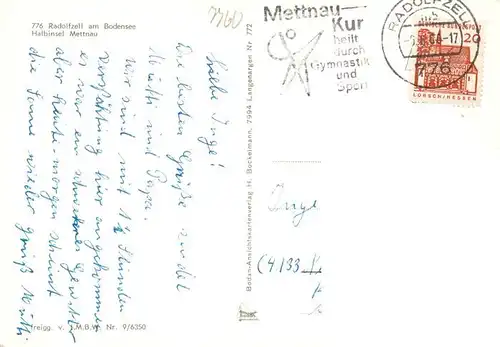 776 Radolfzell am Bodensee
Halbinsel Mettnau
7760
Mettnau-
Kur
heilt
durch
Gymnastik
und
Sport
RADOLFZELL
-17
776
DEUTSCHE BUNDESPOST
20
LORSCH/HESSEN
Liebe Inge!
Die besten Grüße sendet
Mutti und Papa.
Wir sind mit 1½ Stunden
Verspätung hier angekommen
es war ein schweres Gewitter
aber heute morgen scheint
die Sonne wieder Gruß Mutti.
Bodan-Ansichtskartenverlag H. Bockelmann, 7994 Langenargen Nr. 772
Inge
(4133
freigg. v. I.M.B.W. Nr. 9/6350